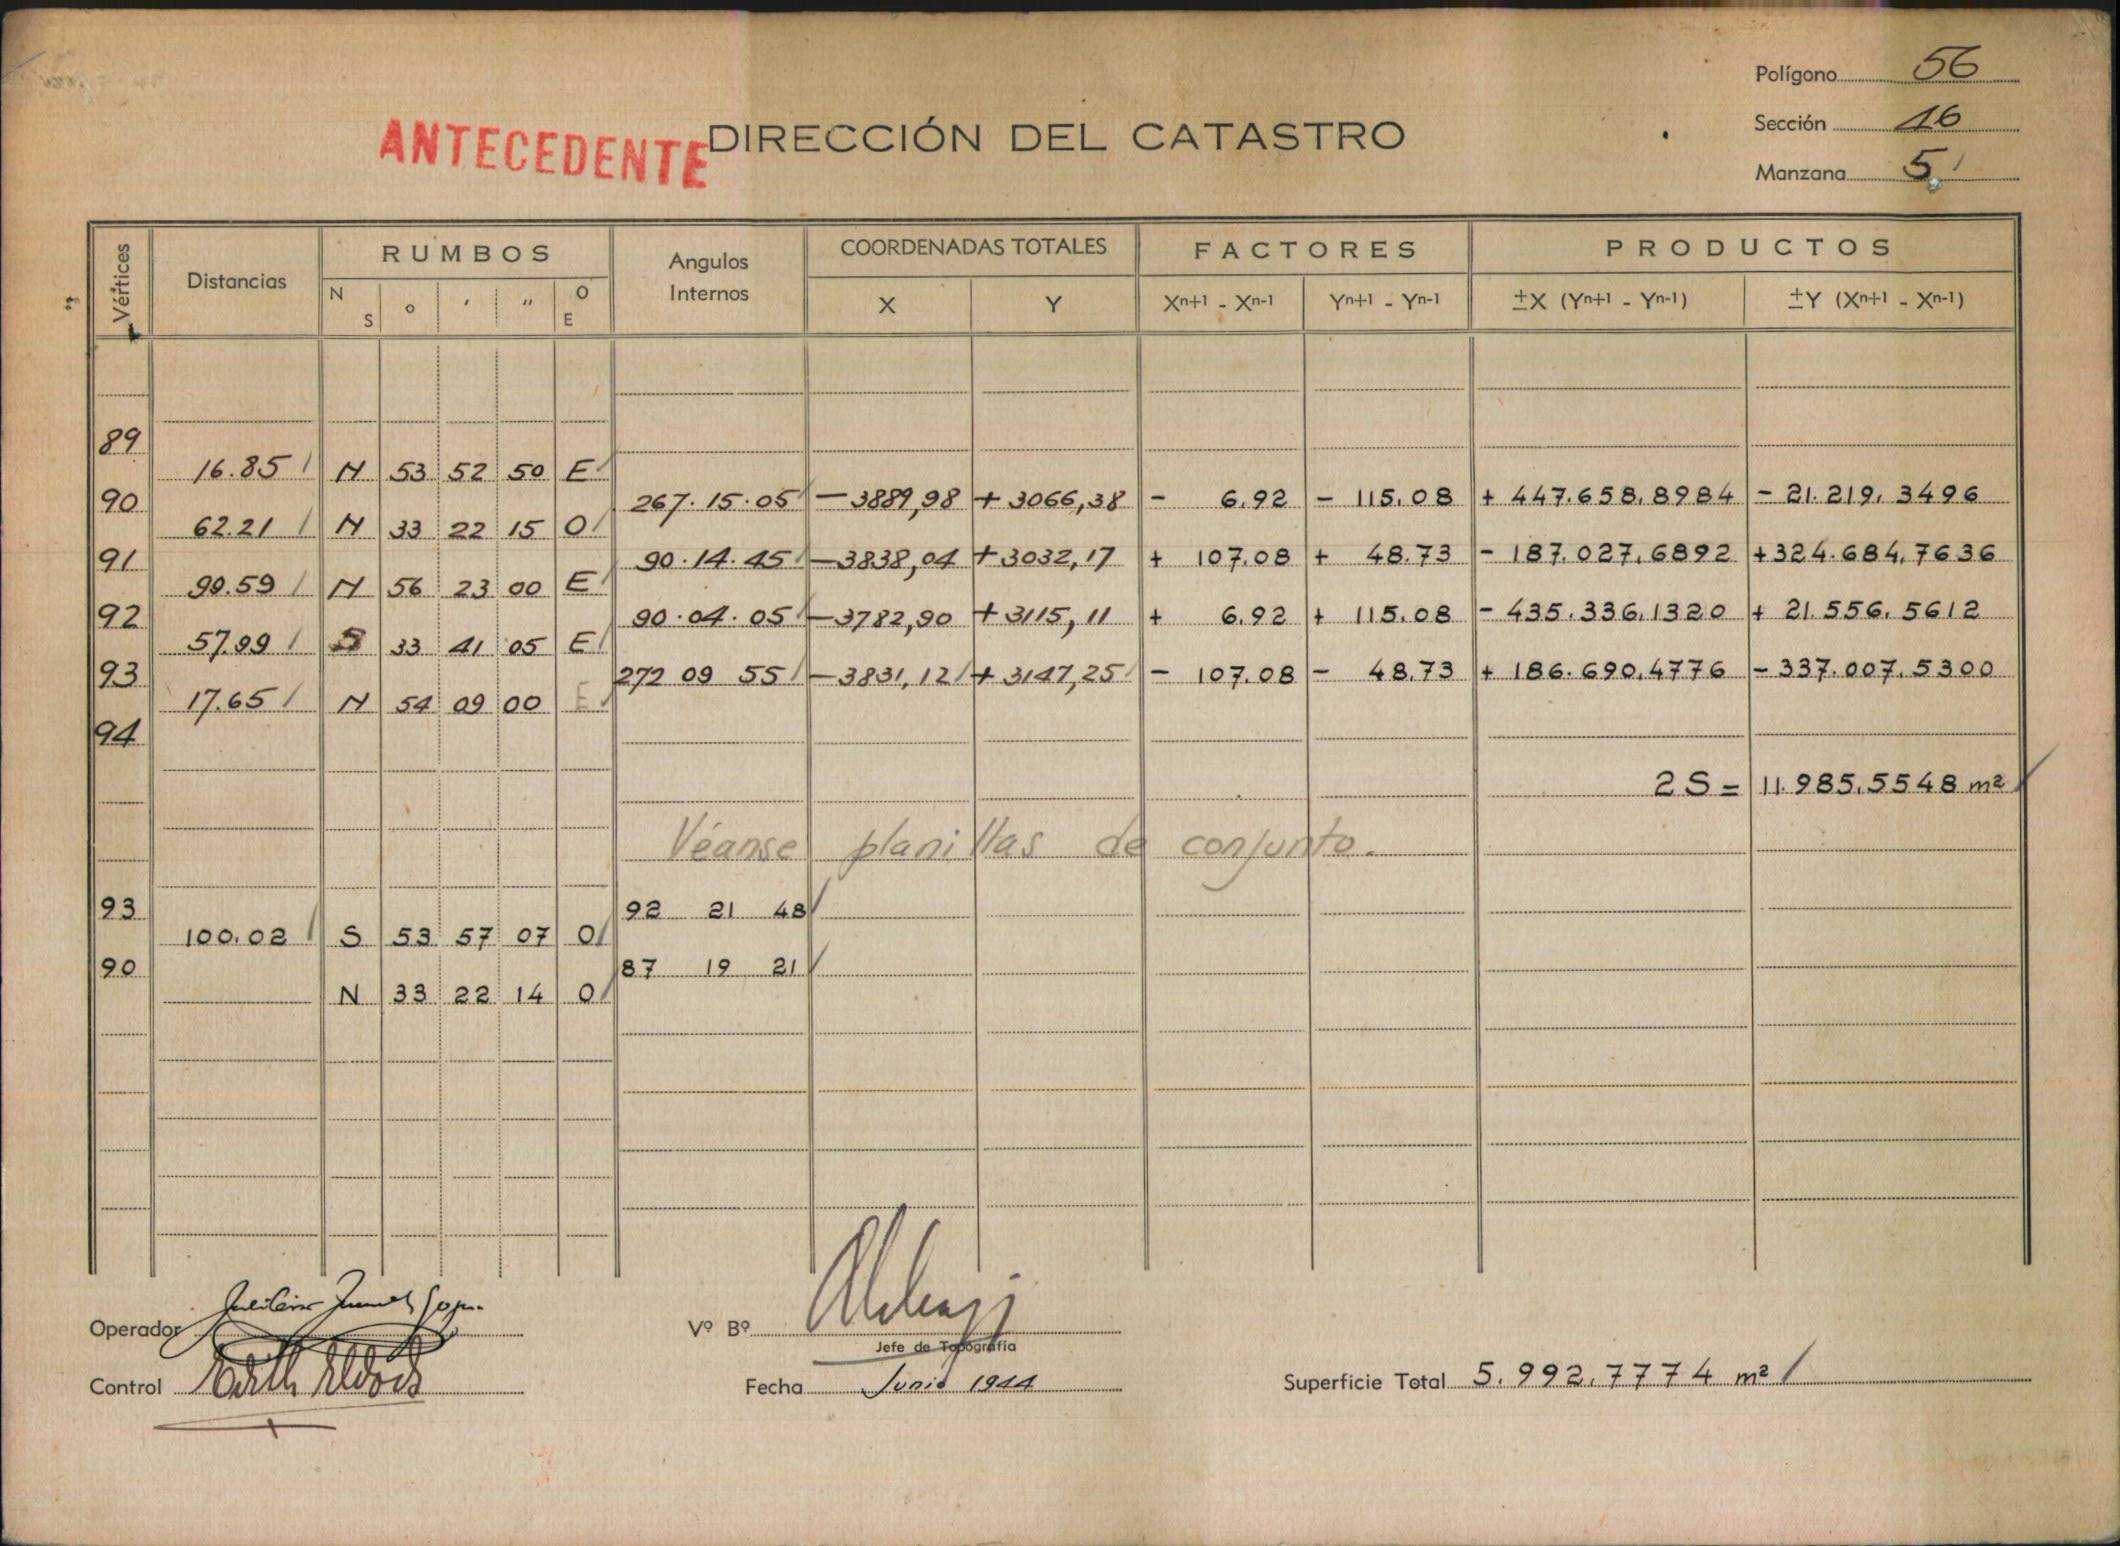 Polígono 56
ANTECEDENTE DIRECCIÓN DEL CATASTRO
Sección 16
Manzana 5
Vértices Distancias RUMBOS Angulos Internos COORDENADAS TOTALES FACTORES PRODUCTOS
N S ° ' " O E X Y Xn+1 - Xn-1 Yn+1 - Yn-1 ±X (Yn+1 - Yn-1) ±Y (Xn+1 - Xn-1)
89
16.85 N 53 52 50 E
90 267.15.05 -3889,98 +3066,38 - 6.92 - 115.08 + 447.658,8984 - 21.219,3496
62.21 N 33 22 15 O
91 90.14.45 -3838,04 +3032,17 + 107.08 + 48.73 - 187.027,6892 +324.684,7636
99.59 N 56 23 00 E
92 90.04.05 -3782,90 +3115,11 + 6.92 + 115.08 - 435.336,1320 + 21.556,5612
57.99 S 33 41 05 E
93 272 09 55 -3831,12 +3147,25 - 107.08 - 48.73 + 186.690,4776 - 337.007,5300
17.65 N 54 09 00 E
94
2S = 11.985,5548 m²
Véanse planillas de conjunto.
93 92 21 48
100.02 S 53 57 07 O
90 87 19 21
N 33 22 14 O
Operador
Vº Bº
Jefe de Topografía
Control
Fecha Junio 1944
Superficie Total 5.992,7774 m²